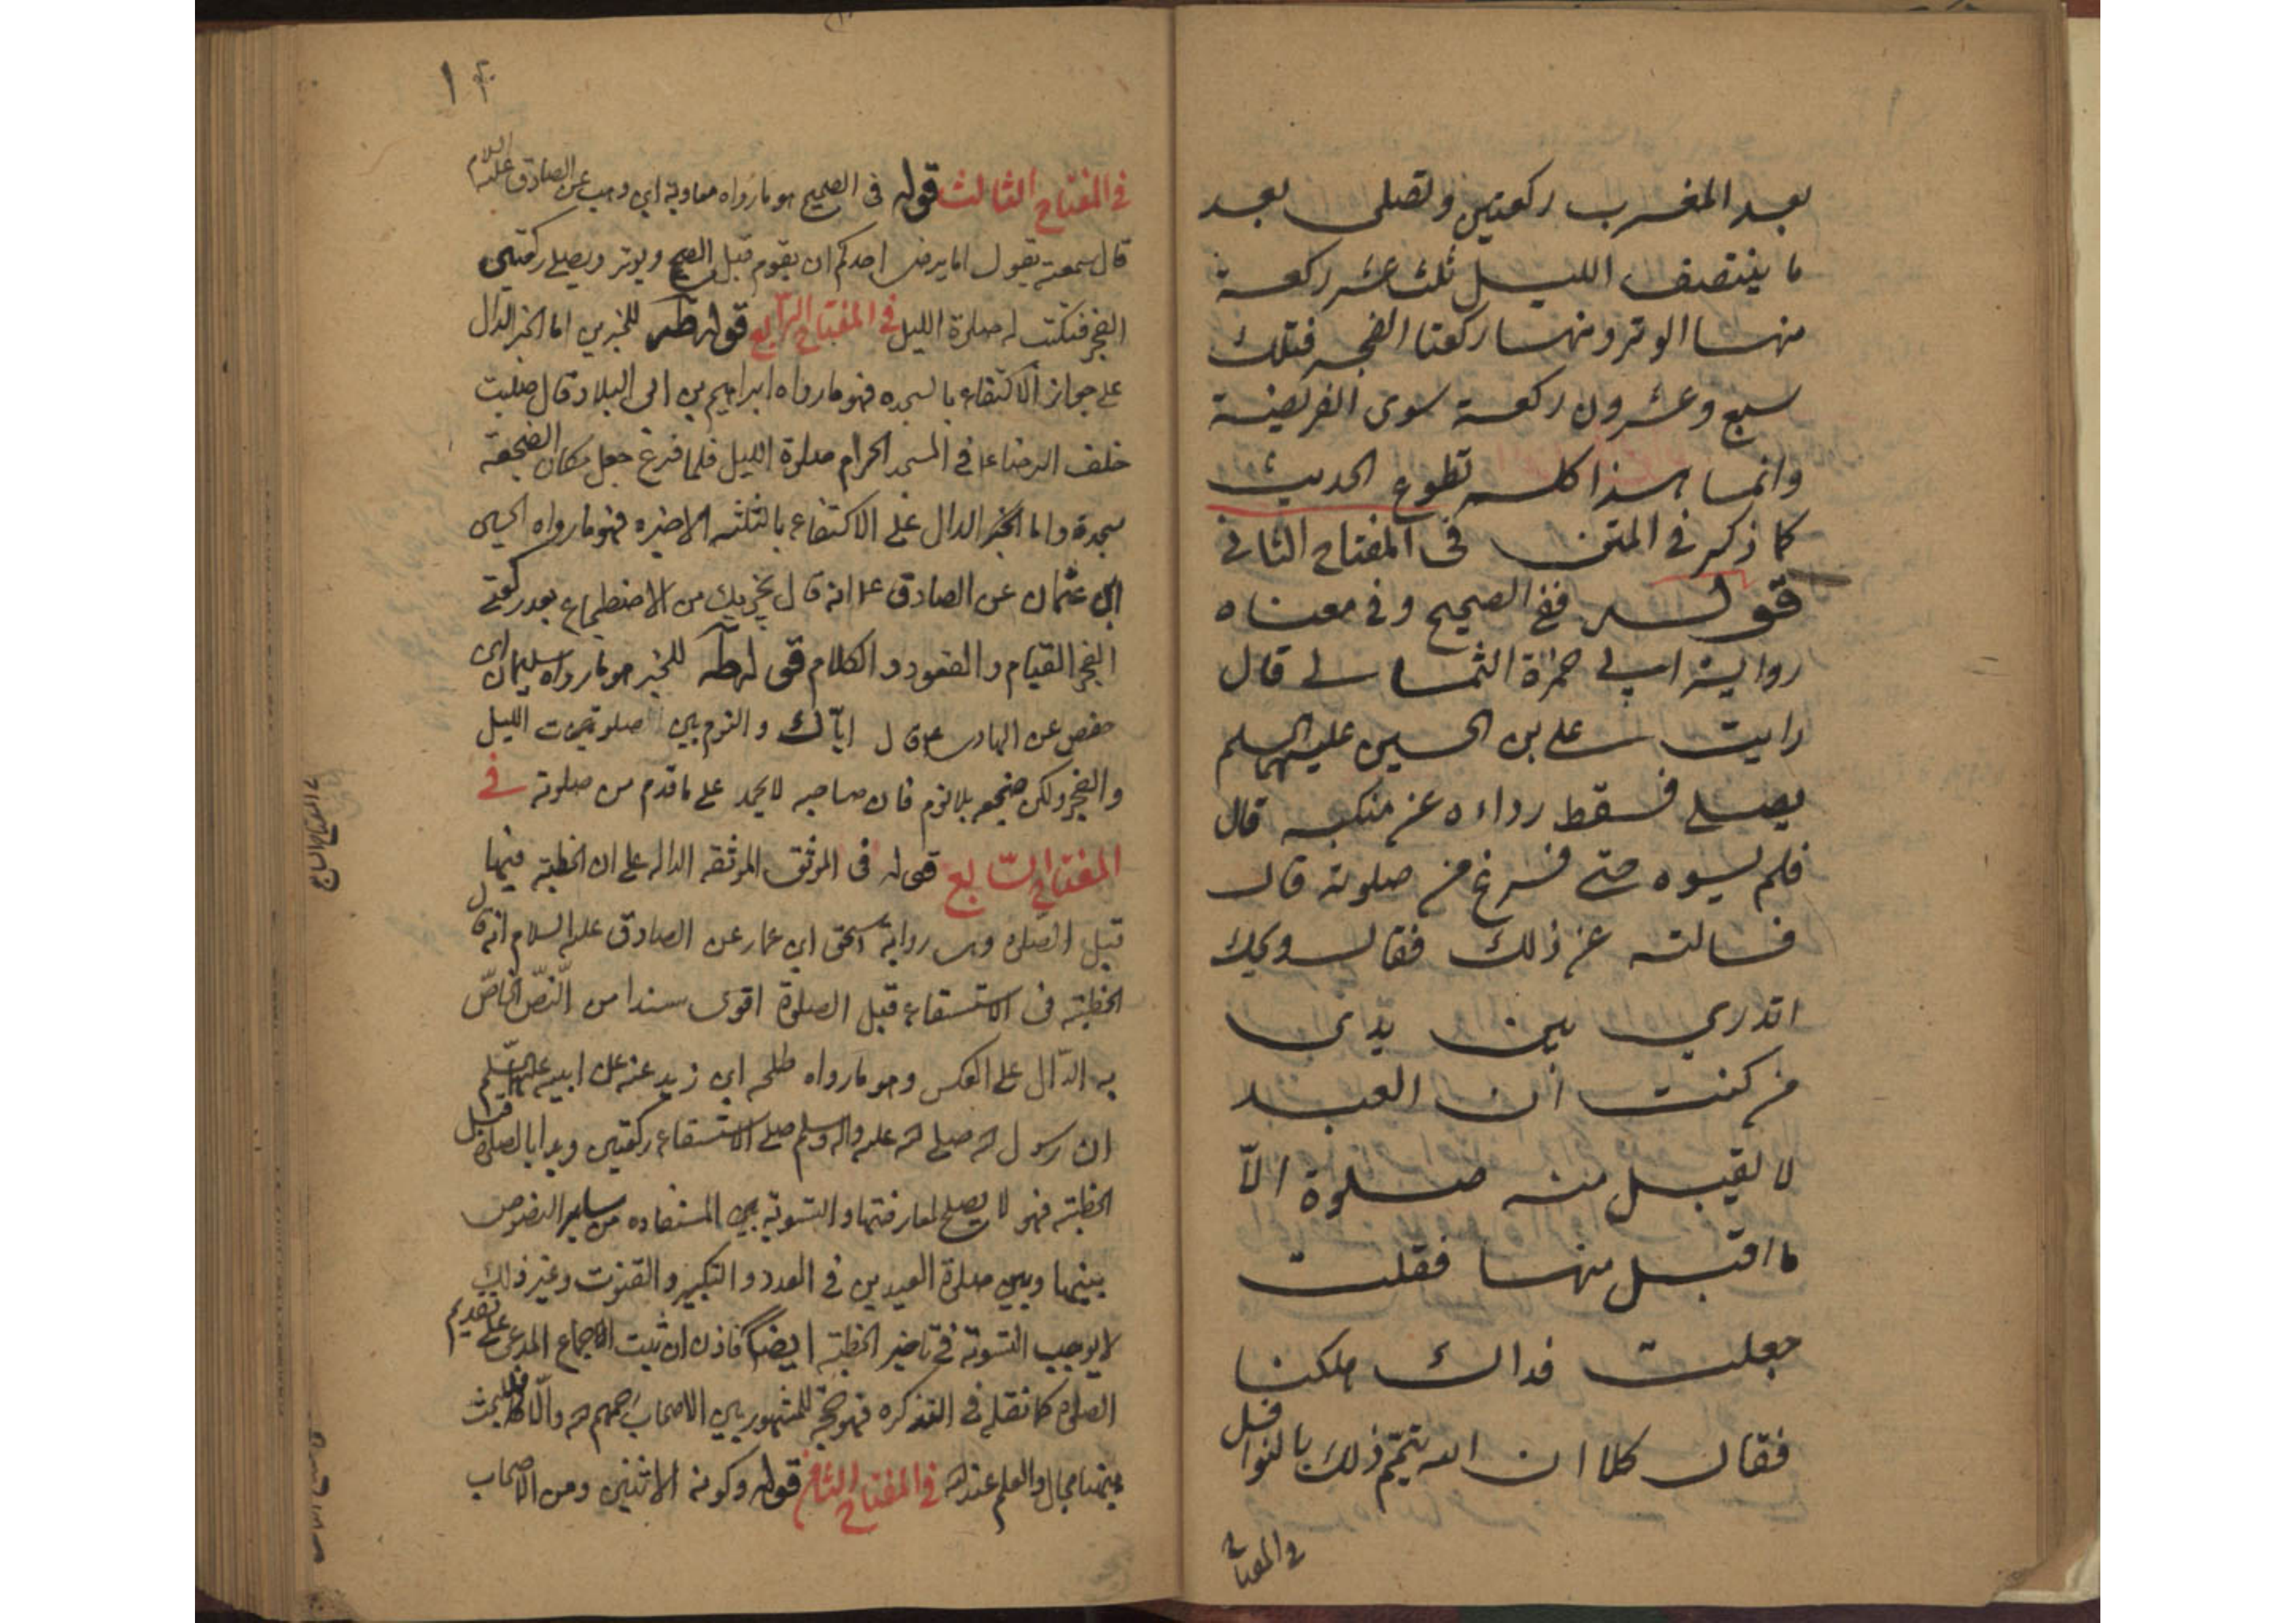 بعد المغرب ركعتين وتصلى بعد
ما ينتصف الليل ثلث عشر ركعة
منها الوتر ومنها ركعتا الفجر فتلك
سبع وعشرون ركعة سوى الفريضة
وانما هذا كله تطوع الحديث
كما ذكر في المتن في المفتاح الثاني
قوله ففي الصحيح وفي معناه
رواية ابي حمزة الثمالي قال
رايت علي بن الحسين عليهما السلم
يصلي فسقط رداءه عن منكبه قال
فلم يسوه حتى فرغ من صلوته قال
فسالته عن ذلك فقال ويحك
اتدري بين يدى
من كنت ان العبد
لا يقبل منه صلوة الّا
ما اقبل منها فقلت
جعلت فداك هلكنا
فقال كلا ان الله يتمّم ذلك بالنوافل
في المفتاح
١٢
في المفتاح الثالث قوله في الصحيح هو ما رواه معاوية ابن وهب عن الصادق عليه السلام
قال سمعته يقول اما يرضى احدكم ان يقوم قبل الصبح ويوتر ويصلي ركعتي
الفجر فتكتب له صلوة الليل في المفتاح الرّابع قوله طه للخبرين اما الخبر الدال
على جواز الاكتفاء بالسجده فهو ما رواه ابراهيم بن ابى البلاد قال صليت
خلف الرضا ع في المسجد الحرام صلوة الليل فلما فرغ جعل مكان الضجعة
سجدة واما الخبر الدال على الاكتفاء بالثلثه الاخيره فهو ما رواه الحسين
ابن عثمان عن الصادق ع انه قال يجزيك من الاضطجاع بعد ركعتي
الفجر القيام والقعود والكلام قوله طه للخبر هو ما رواه سليمان ابن
حفص عن الهادى ع قال ايّاك والنوم بين صلوة الليل
والفجر ولكن ضجعه بلا نوم فان صاحبه لا يحمد على ما قدم من صلوته في
المفتاح السّابع قوله في الموثق الموثقه الداله على ان الخطبة فيها
قبل الصلوة وهى رواية اسحق ابن عمار عن الصادق عليه السلام انه قال
الخطبة في الاستسقاء قبل الصلوة اقوى سندا من النّص الخاصّ
به الدّال على العكس وهو ما رواه طلحه ابن زيد عنه عن ابيه عليهما السّلم
ان رسول الله صلى الله عليه واله وسلم صلى الاستسقاء ركعتين وبدا بالصلوة قبل
الخطبة فهو لا يصلح لمعارضتها والتسوية بين المستفاده من ساير النصوص
بينها وبين صلوة العيدين في العدد والتكبير والقنوت وغير ذلك
لا يوجب التسوية في تاخير الخطبة ايضا فاذن ان ثبت الاجماع المدعى على تقديم
الصلوة كما نقله في التذكره فهو حجة للمشهور بين الاصحاب رحمهم الله والّا فللبحث
بينهما مجال والعلم عند الله في المفتاح الثامن قوله وكونه الاثنين ومن الاصحاب